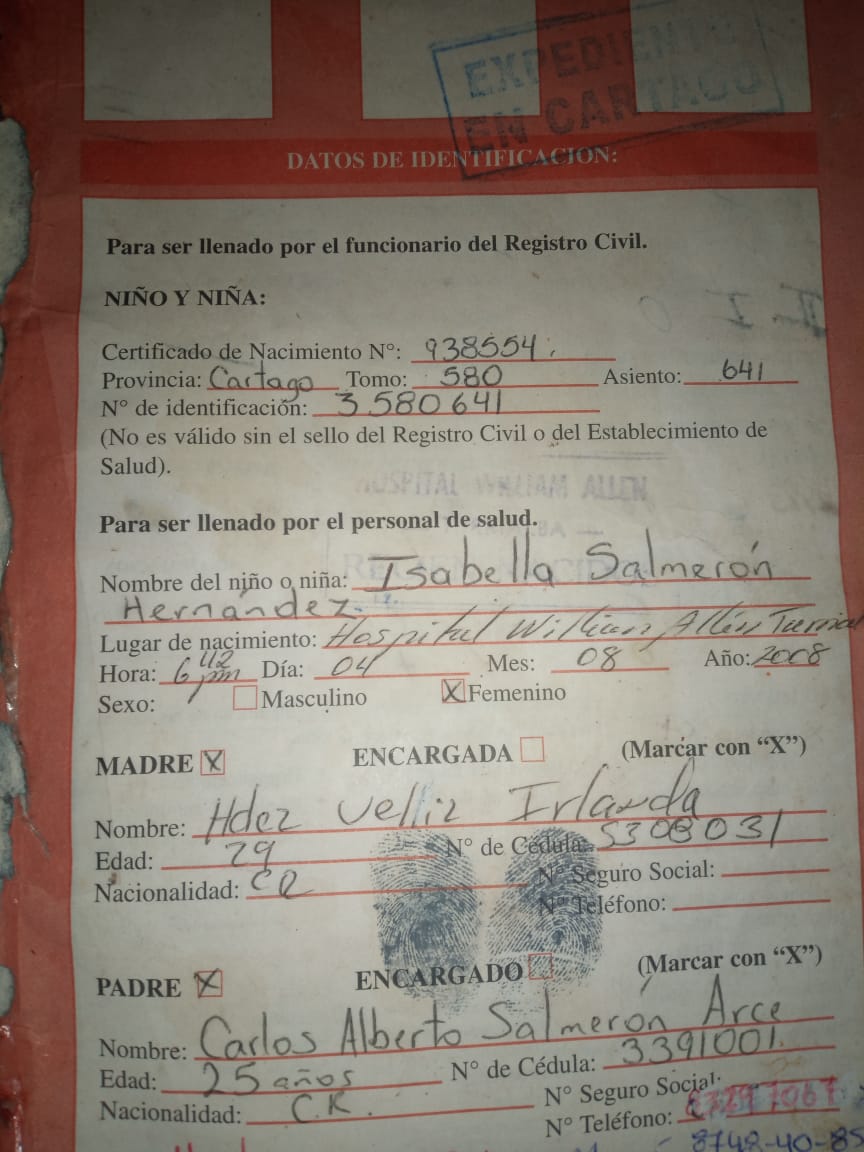 EXPEDIENTE
EN CARTAGO
DATOS DE IDENTIFICACION:
Para ser llenado por el funcionario del Registro Civil.
NIÑO Y NIÑA:
Certificado de Nacimiento N°: 938554.
Provincia: Cartago Tomo: 580 Asiento: 641
N° de identificación: 3 580 641
(No es válido sin el sello del Registro Civil o del Establecimiento de
Salud).
HOSPITAL WILLIAM ALLEN
Para ser llenado por el personal de salud.
Nombre del niño o niña: Isabella Salmerón
Hernández.
Lugar de nacimiento: Hospital William Allen
Hora: 6 42 pm Día: 04 Mes: 08 Año: 2008
Sexo: Masculino X Femenino
MADRE X ENCARGADA (Marcar con “X”)
Nombre: Hdez Velliz Irlanda
Edad: 29 N° de Cédula: 5308031
Nacionalidad: CR N° Seguro Social:
N° Teléfono:
PADRE X ENCARGADO (Marcar con “X”)
Nombre: Carlos Alberto Salmerón Arce
Edad: 25 años N° de Cédula: 3391001.
Nacionalidad: C.R. N° Seguro Social:
N° Teléfono:
8748-40-85